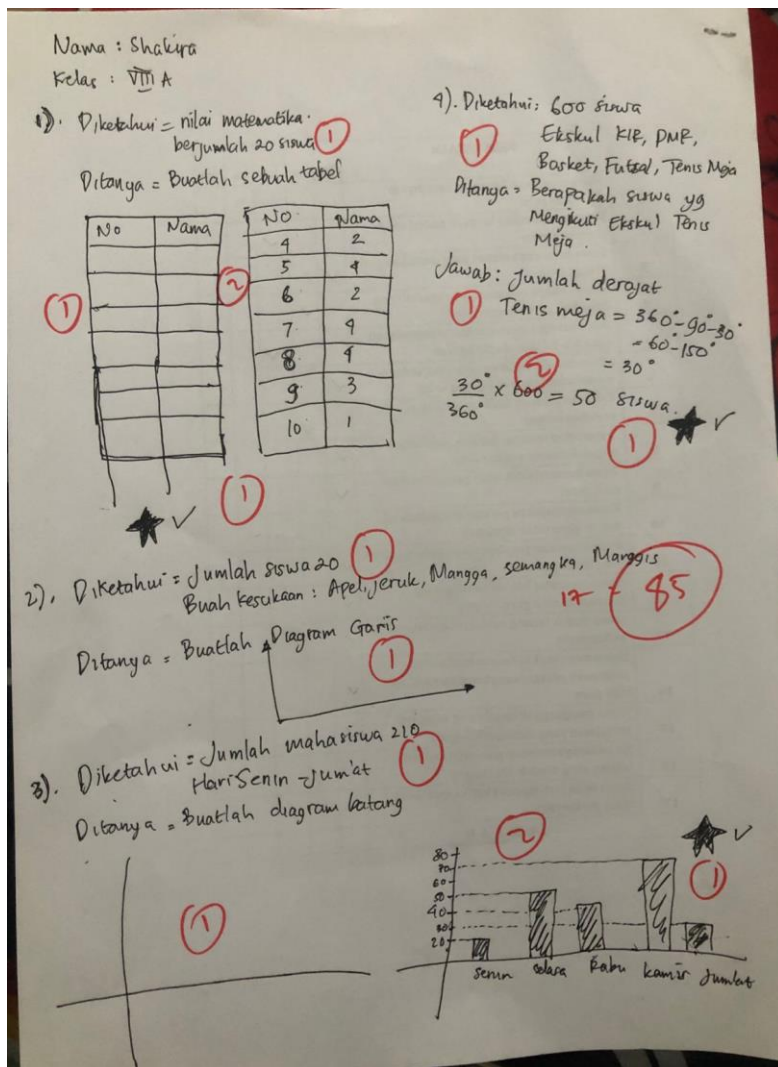 Nama : Shakira
Kelas : VIII A
1). Diketahui = nilai matematika.
berjumlah 20 siswa 1
Ditanya = Buatlah sebuah tabel
No Nama
1
2
No Nama
4 2
5 4
6 2
7 4
8 4
9 3
10 1
✓ 1
2). Diketahui = Jumlah siswa 20 1
Buah kesukaan : Apel, Jeruk, Mangga, semangka, Manggis
Ditanya = Buatlah Diagram Garis
1
3). Diketahui = Jumlah mahasiswa 210
Hari Senin - Jum'at 1
Ditanya = Buatlah diagram batang
1
4). Diketahui : 600 siswa
1 Ekskul KIR, PMR,
Basket, Futsal, Tenis Meja
Ditanya = Berapakah siswa yg
Mengikuti Ekskul Tenis
Meja.
Jawab : Jumlah derajat
1 Tenis meja = 360° - 90° - 30°
- 60° - 150°
= 30°
2
30°/360° × 600 = 50 siswa.
1 ✓
17 - 85
2
✓
1
80
70
60
50
40
30
20
Senin Selasa Rabu Kamis Jumat